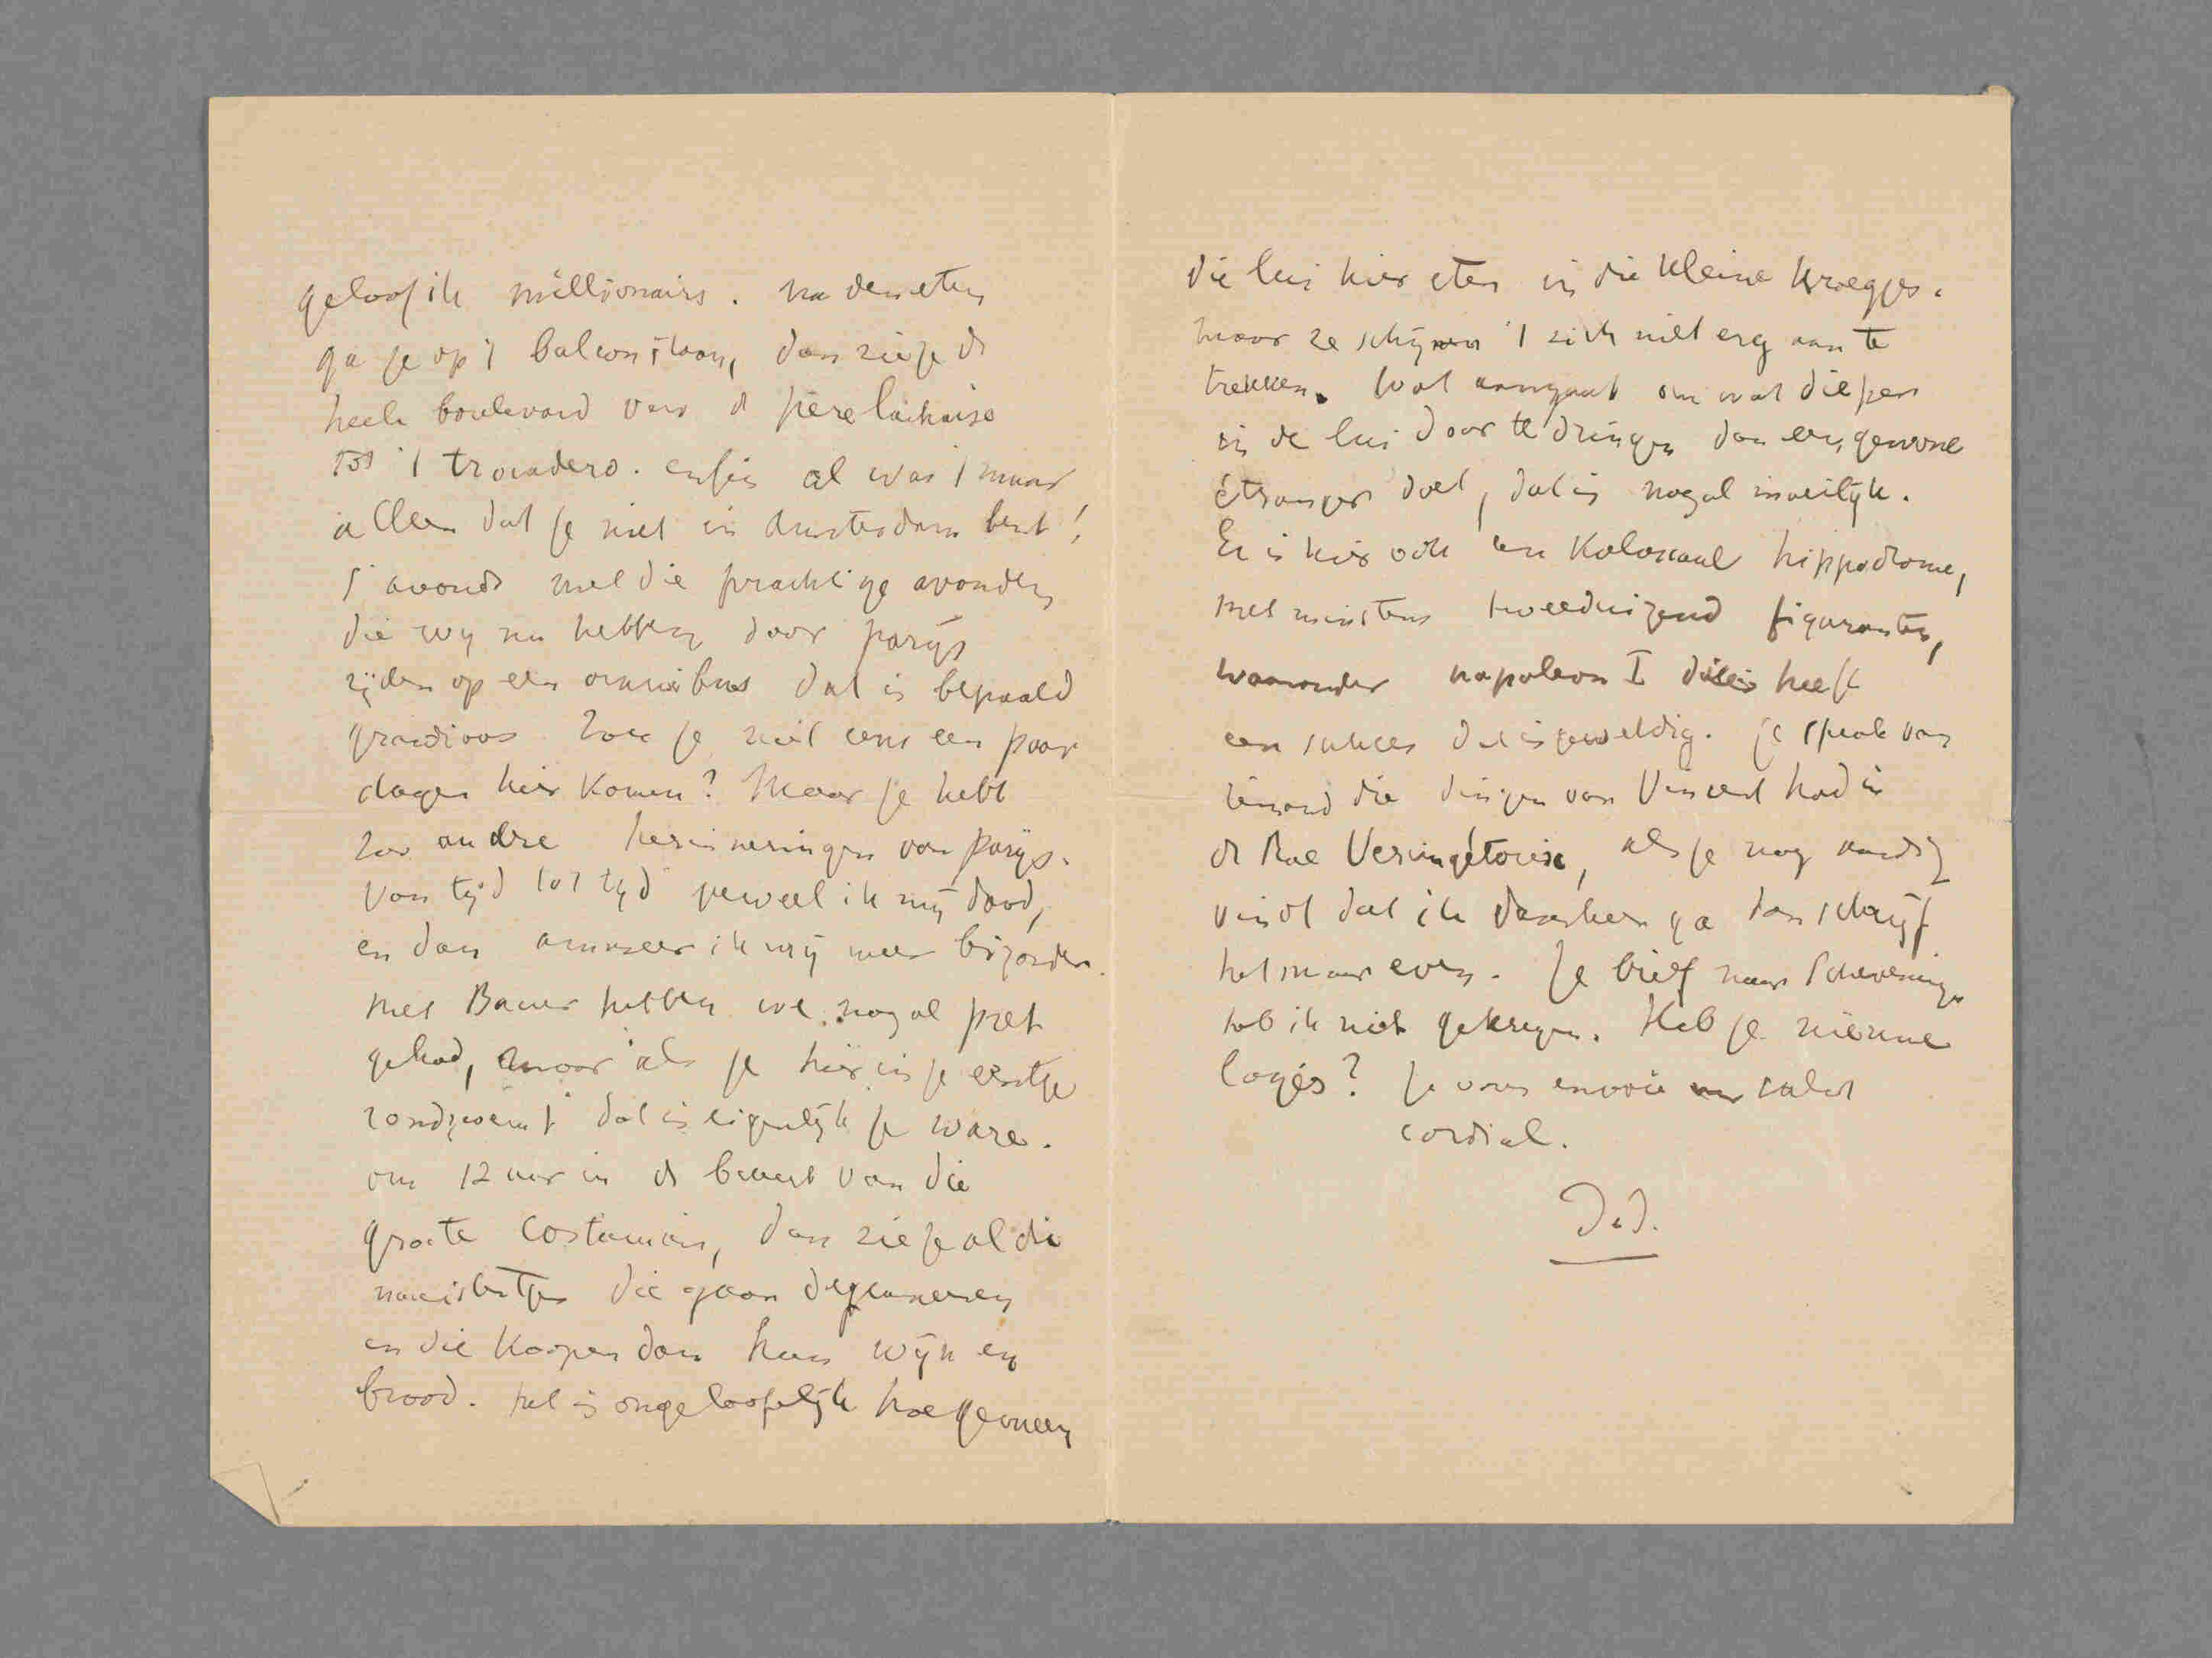 geloof ik millionairs. na den eten
ga je op 't balcon staan, dan zie je de
heele boulevard van de père lachaise
tot 't trocadero. enfin al was 't maar
alleen dat je niet in Amsterdam bent!
s' avonds met die prachtige avonden
die wij nu hebben door parijs
rijden op een omnibus dat is bepaald
grandioos. Zou je niet eens een paar
dagen hier komen? Maar je hebt
zoo andre herinneringen van parijs.
Van tijd tot tijd verveel ik mij dood,
en dan amuseer ik mij weer bizonder.
Met Bauer hebben we nogal pret
gehad, maar als je hier in je eentje
rondzwemt dat is eigenlijk je ware.
om 12 uur in de buurt van die
groote costumiers, dan zie je al die
naaistertjes die gaan dejeuneren
en die koopen dan hun wijn en
brood. het is ongeloofelijk hoe gemeen
die lui hier eten in die kleine kroegjes.
maar ze schijnen 't zich niet erg aan te
trekken. Wat aangaat om wat dieper
in de lui door te dringen dan een gewone
étranger doet, dat is nogal moeilijk.
Er is hier ook een kolossaal hippodrome,
met minstens tweeduizend figuranten,
waaronder napoleon I die heeft
een succes dat is geweldig. je sprak van
iemand die dingen van Vincent had in
de Rue Vercingétorix, als je nog aardig
vindt dat ik daarheen ga dan schrijf
het maar even. Je brief naar Scheveningen
heb ik niet gekregen. Heb je nieuwe
logés? je vous envoie un salut
cordial.